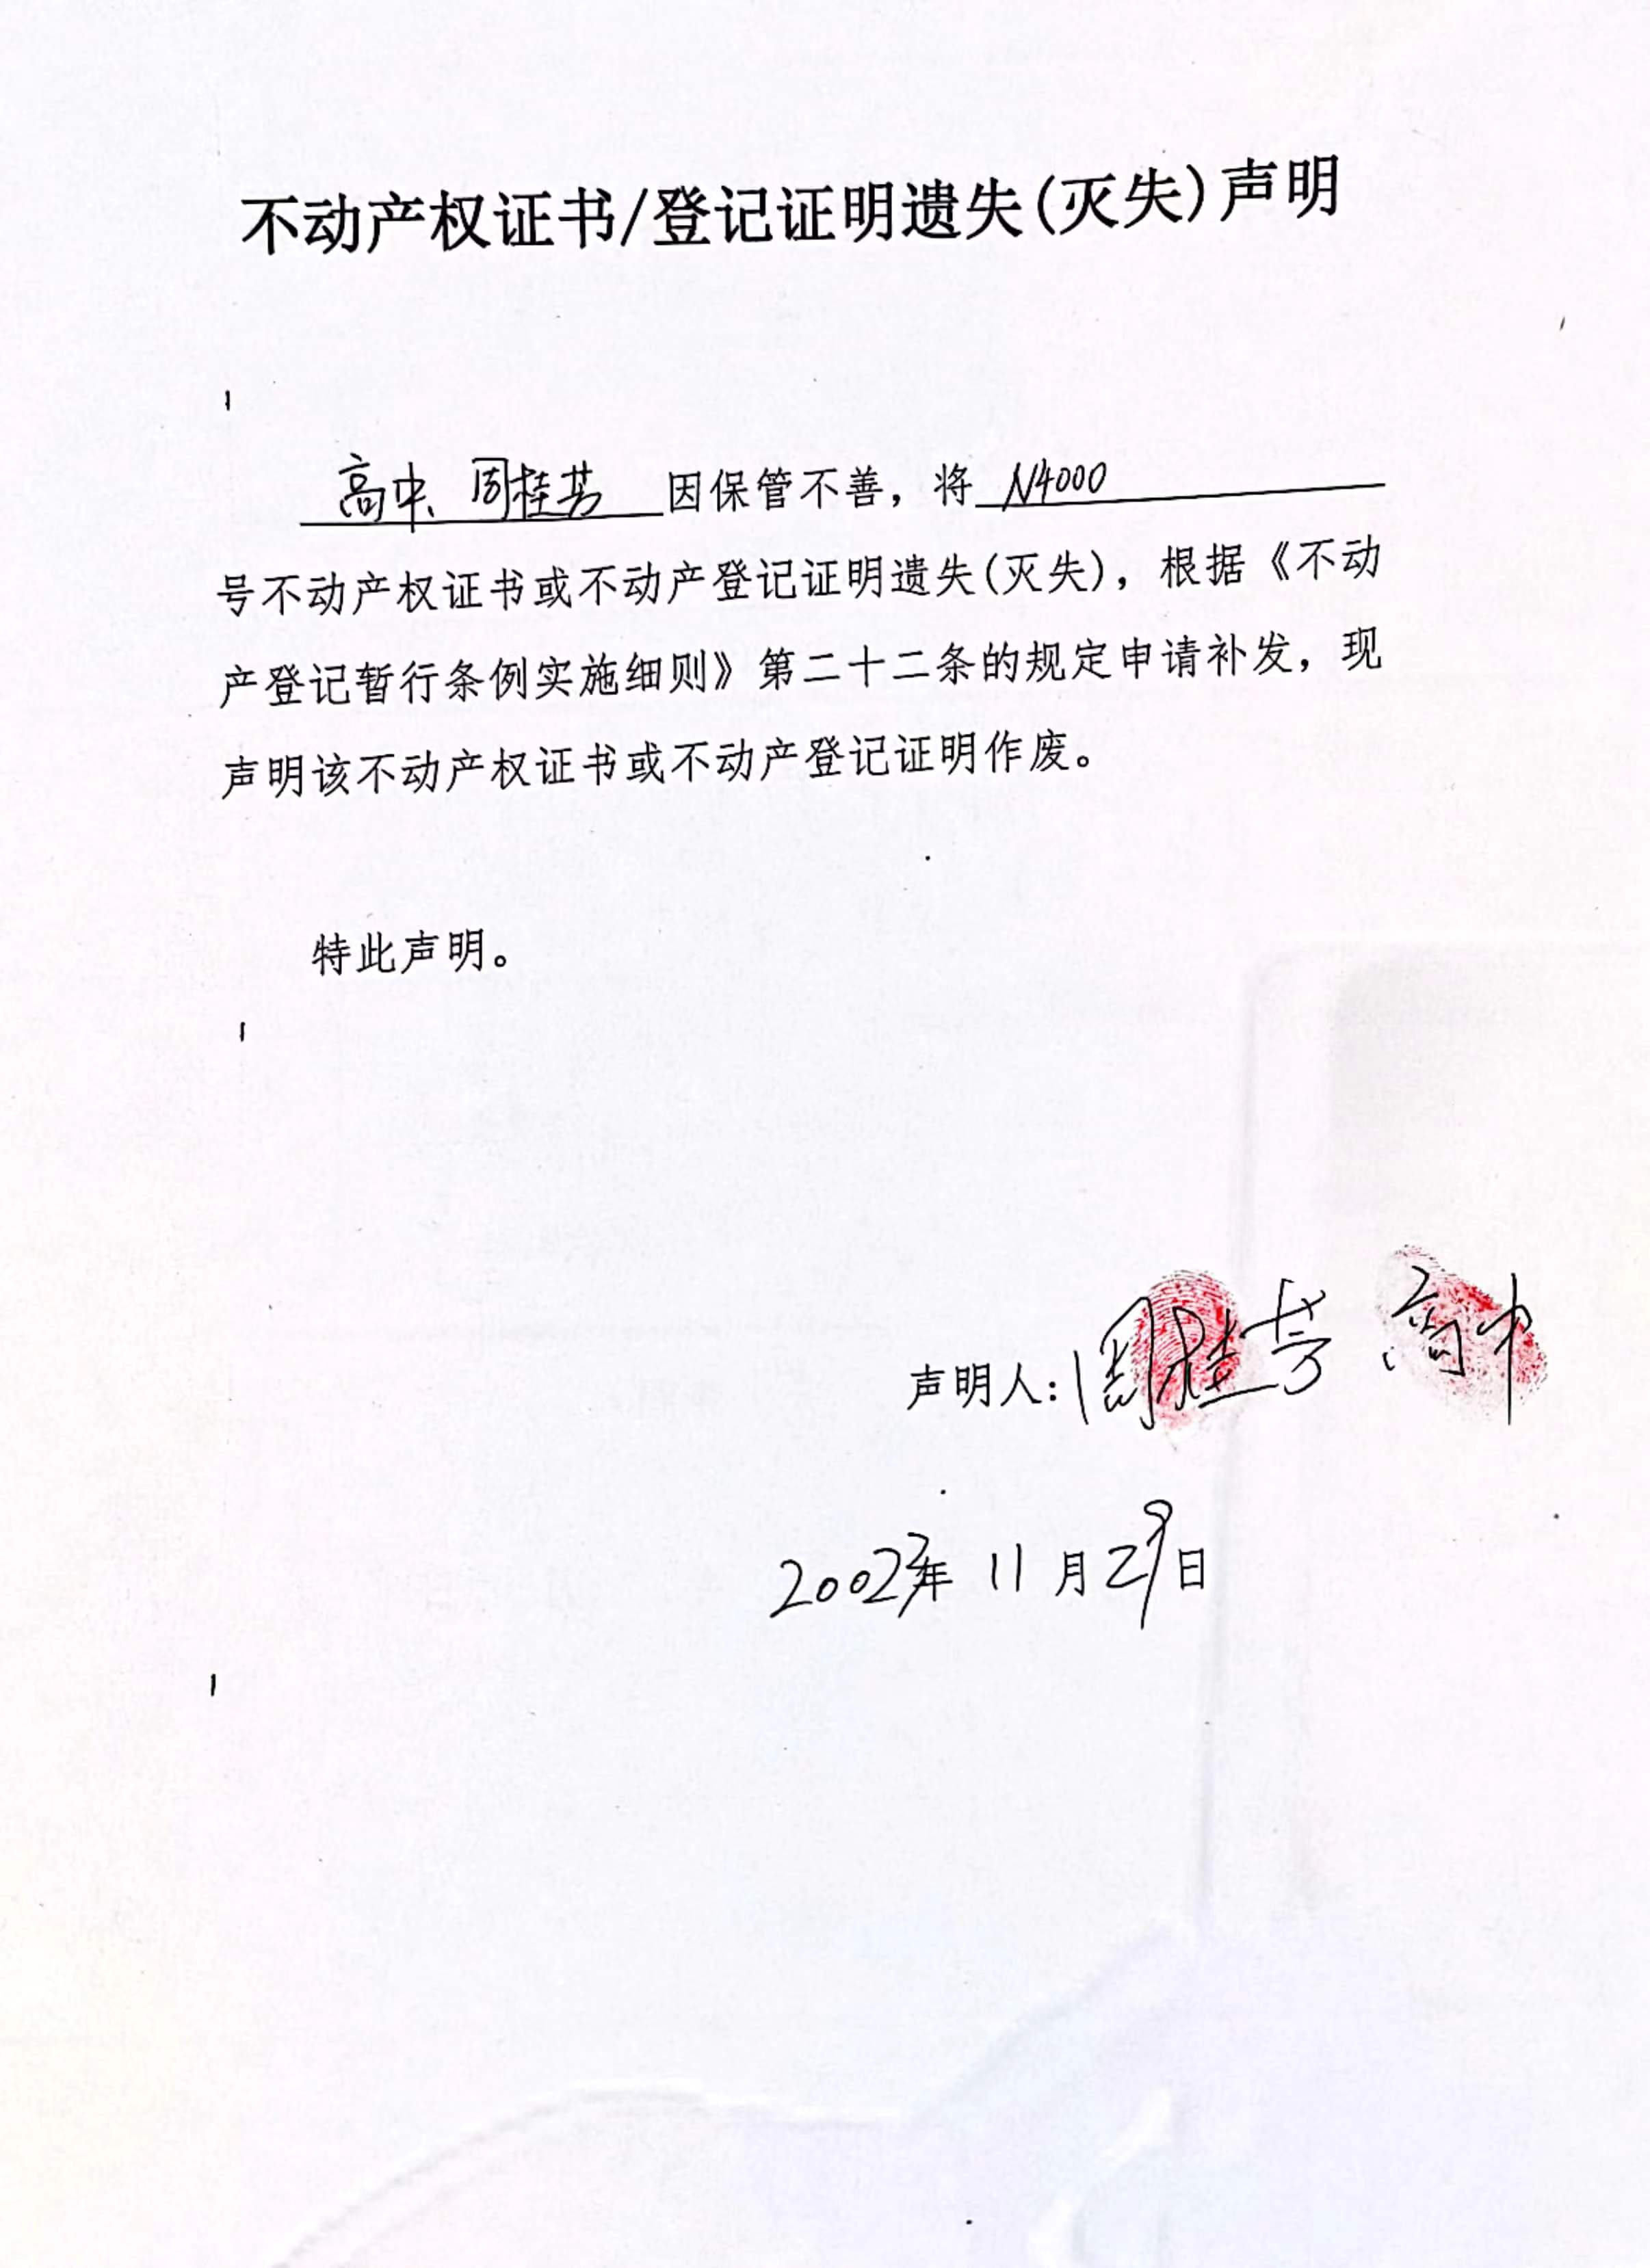 不动产权证书/登记证明遗失(灭失)声明
高中、周桂芳 因保管不善，将 N4000
号不动产权证书或不动产登记证明遗失(灭失)，根据《不动
产登记暂行条例实施细则》第二十二条的规定申请补发，现
声明该不动产权证书或不动产登记证明作废。
特此声明。
声明人：周桂芳 高中
20023年 11 月 29 日